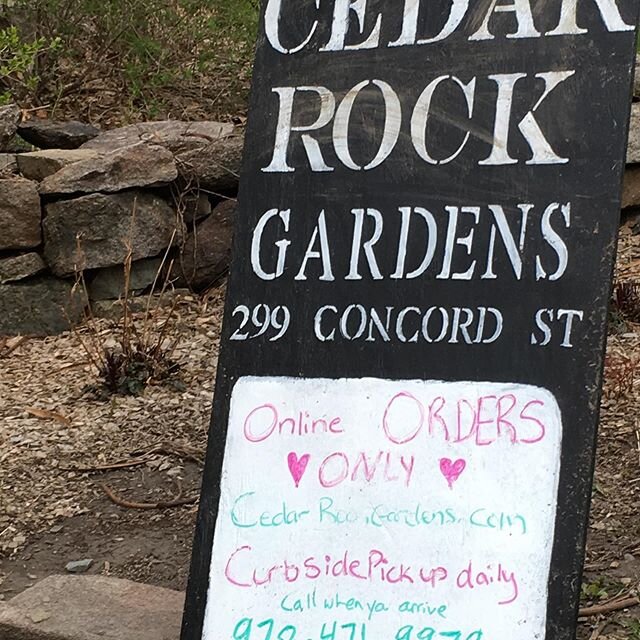 CEDAR
ROCK
GARDENS
299 CONCORD ST
Online ORDERS
ONLY
Cedar
Curbside Pick up daily
Call when ya arrive